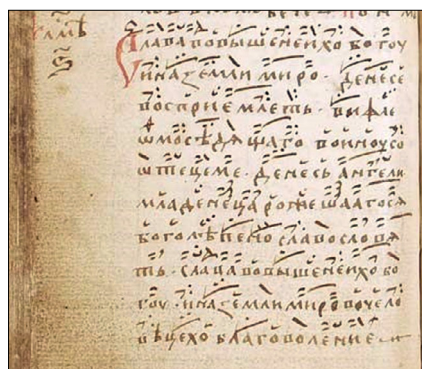 Слава во вышенеихо богоу
и на земли миро · денесе
восприемлете · вифле
ѡмо сѣдящаго воиноу со
ѡтецеме · денесь ангели
младенеца рожешаагося
боголѣпено славословя
ть · слава во вышенеихо бо
гоу · и на земли миро во чело
вѣцехо благоволение